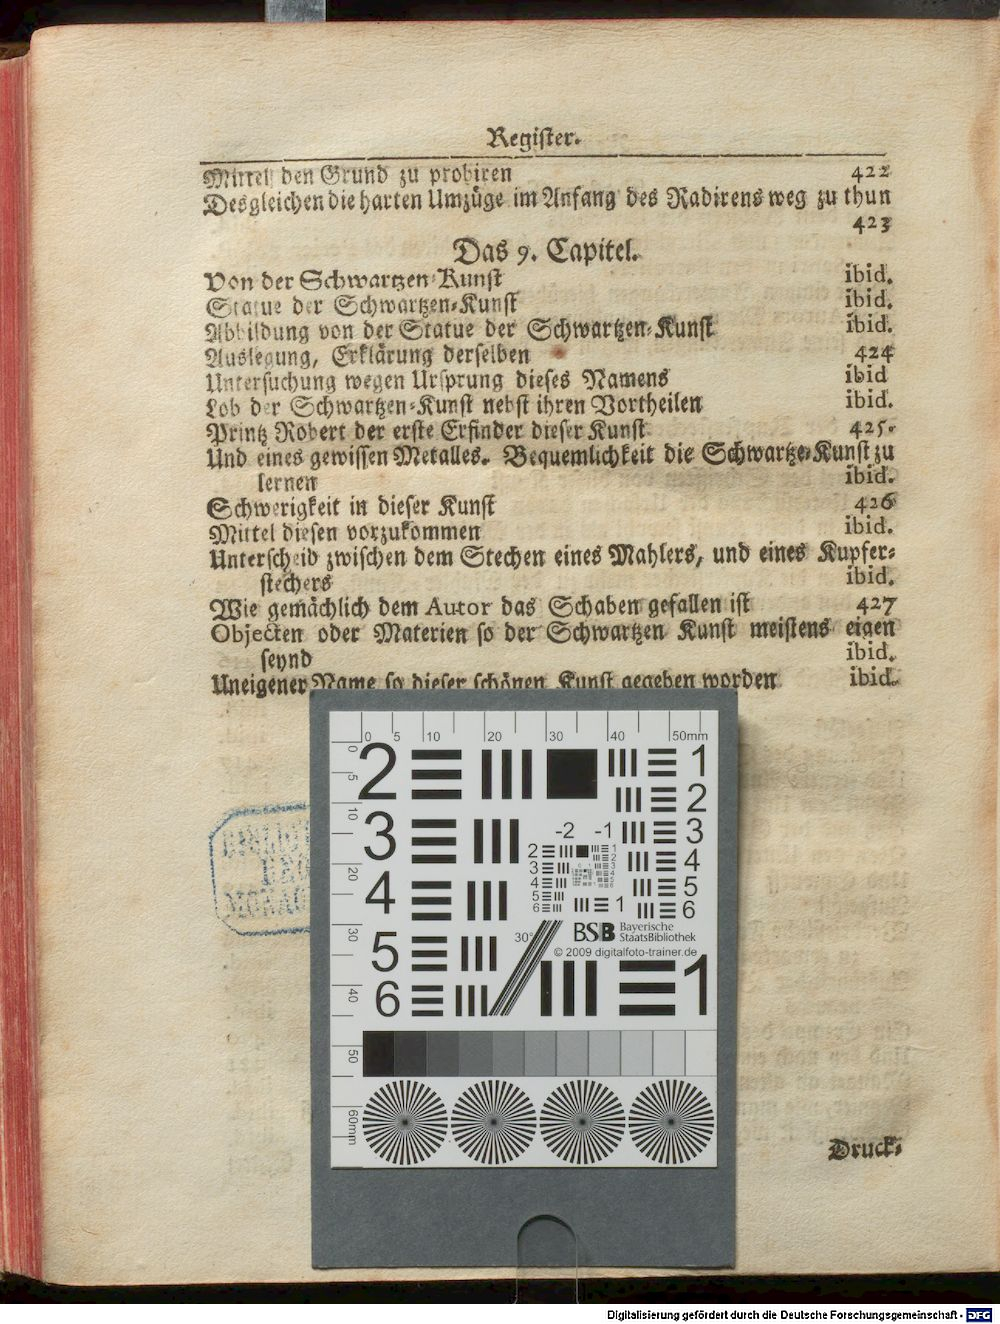 Register.
Mittel den Grund zu probiren 422
Desgleichen die harten Umzüge im Anfang des Radirens weg zu thun
423
Das 9. Capitel.
Von der Schwartzen-Kunst ibid.
Statue der Schwartzen-Kunst ibid.
Abbildung von der Statue der Schwartzen-Kunst ibid.
Auslegung, Erklärung derselben 424
Untersuchung wegen Ursprung dieses Namens ibid
Lob der Schwartzen-Kunst nebst ihren Vortheilen ibid.
Printz Robert der erste Erfinder dieser Kunst 425.
Und eines gewissen Metalles. Bequemlichkeit die Schwartze-Kunst zu
lernen ibid.
Schwerigkeit in dieser Kunst 426
Mittel diesen vorzukommen ibid.
Unterscheid zwischen dem Stechen eines Mahlers, und eines Kupfer-
stechers ibid.
Wie gemächlich dem Autor das Schaben gefallen ist 427
Objecten oder Materien so der Schwartzen Kunst meistens eigen
seynd ibid.
Uneigener Name so dieser schönen Kunst gegeben worden ibid.
0 5 10 20 30 40 50mm
0 5 10 20 30 40 50 60mm
2 1
2
3 -2 -1 3
2 1
3 2
4 3 4
4
5 5 5
6 6
4 1 6
30°
BSB Bayerische
StaatsBibliothek
© 2009 digitalfoto-trainer.de
5
6 1
Druck-
Digitalisierung gefördert durch die Deutsche Forschungsgemeinschaft - DFG